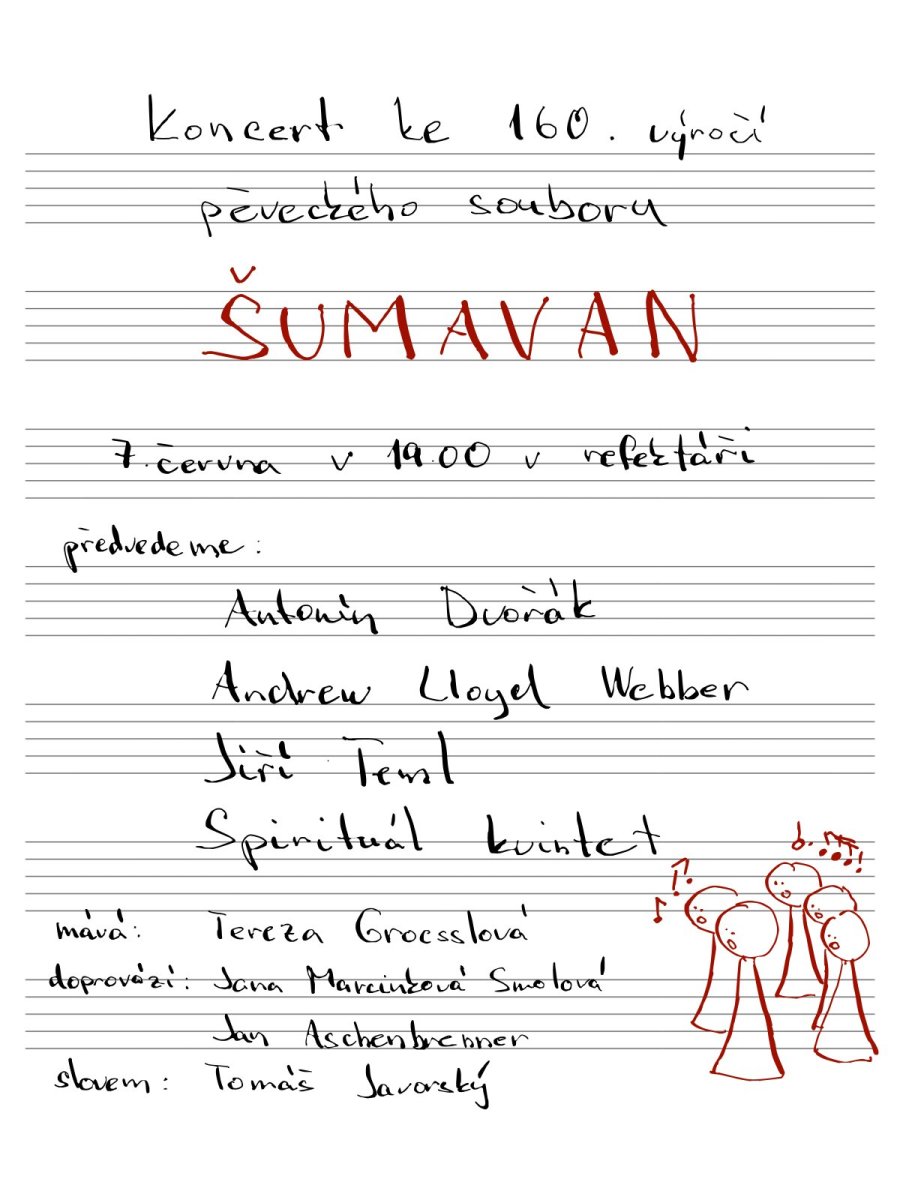 Koncert ke 160. výročí
pěveckého souboru
ŠUMAVAN
7. června v 19.00 v refektáři
předvedeme:
Antonín Dvořák
Andrew Lloyd Webber
Jiří Teml
Spirituál kvintet
mává: Tereza Groesslová
doprovází: Jana Marcinková Smolová
Jan Aschenbrenner
slovem: Tomáš Javorský